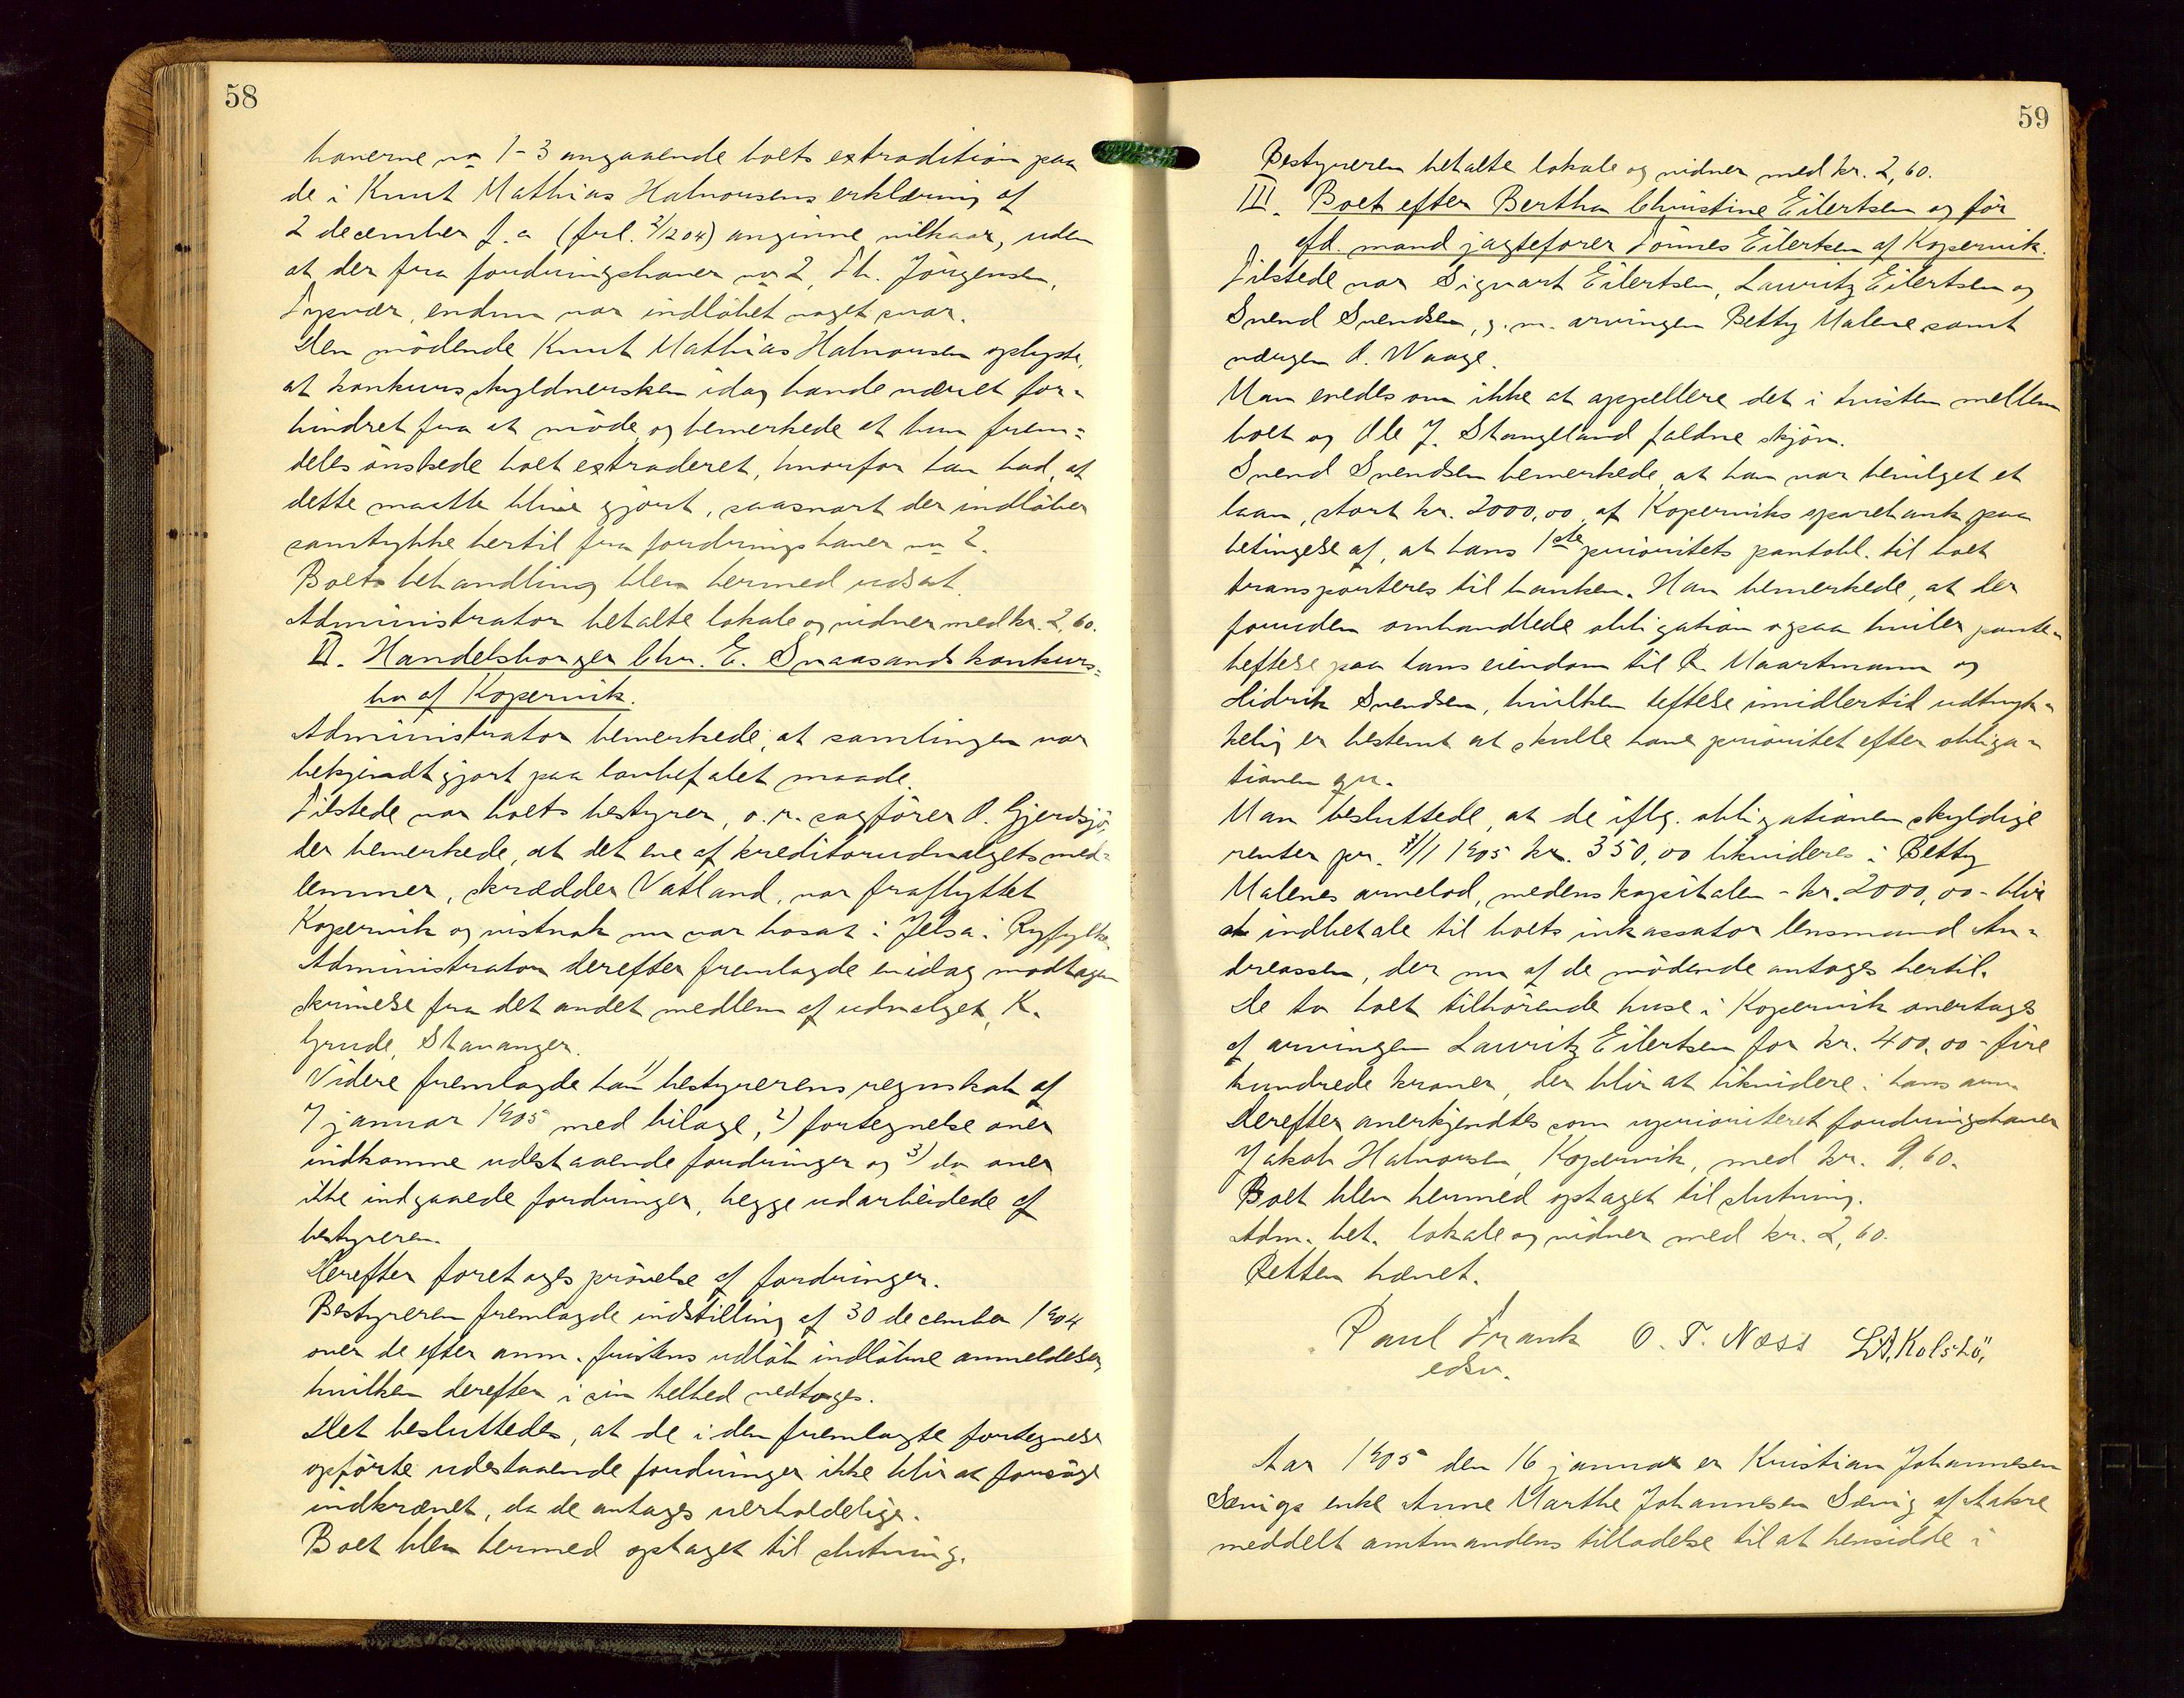 58
haverne no 1-3 angaaende boets extradition paa
de i Knut Mathias Halvorsens erklæring af
2 december f. a. (frl. 2/12 04) anginne vilkaar, uden
at der fra fordringshaver no 2, Th. Jörgensen,
Tysvær, endnu var indløbet noget svar.
Den mödende Knut Mathias Halvorsen oplyste,
at konkursskyldnersken idag havde været for-
hindret fra at möde og bemerkede at hun frem-
deles önskede boet extraderet, hvorfor han bad, at
dette maatte blive gjort, saasnart der indlöber
samtykke hertil fra fordringshaver no 2.
Boets behandling blev hermed udsat.
Administrator betalte lokale og vidner med kr. 2,60.
II. Handelsborger Chr. E. Snaasands konkurs-
bo af Kopervik.
Administrator bemerkede, at samlingen var
bekjendtgjort paa lovbefalet maade.
Tilstede var boets bestyrer, o.r. sagförer O. Gjerdsjö,
der bemerkede, at det ene af kreditorudvalgets med-
lemmer, skrædder Vatland, var fraflyttet
Kopervik og vistnok nu var bosat i Jelsa i Ryfylke.
Administrator derefter fremlagde en idag modtagen
skrivelse fra det andet medlem af udvalget, K.
Grude, Stavanger.
Videre fremlagde han 1) bestyrerens regnskab af
7 januar 1905 med bilage, 2) fortegnelse over
indkomne udestaaende fordringer og 3) do over
ikke indgaaede fordringer, begge udarbeidede af
bestyreren.
Derefter foretoges prövelse af fordringer.
Bestyreren fremlagde indstilling af 30 december 1904
over de efter anm. fristens udlöb indløbne anmeldelser,
hvilken derefter i sin helhed vedtoges.
Det besluttedes, at de i den fremlagte fortegnelse
opförte udestaaende fordringer ikke blir at forsöge
indkrævet, da de antages uerholdelige.
Boet blev hermed optaget til slutning.
59
Bestyreren betalte lokale og vidner med kr. 2,60.
III. Boet efter Bertha Christine Eilertsen og för
afd. mand jagtefører Tönnes Eilertsen af Kopervik.
Tilstede var Sigvart Eilertsen, Lauritz Eilertsen og
Svend Svendsen, g. m. arvingen Betty Malene samt
værgen O. Waage.
Man enedes om ikke at appellere det i tvisten mellem
boet og Ole J. Stangeland faldne skjön.
Svend Svendsen bemerkede, at han var bevilget et
laan, stort kr. 2000,00, af Koperviks sparebank paa
betingelse af, at hans 1ste prioritets pantobl. til boet
transporteres til banken. Han bemerkede, at der
foruden omhandlede obligation ogsaa hviler pante-
heftelse paa hans eiendom til R. Maartmann og
Hidrik Svendsen, hvilken heftelse imidlertid udtryk-
kelig er bestemt at skulle have prioritet efter obliga-
tionen qu.
Man besluttede, at de iflg. obligationen skyldige
renter pr. 3/1 1905 kr. 350,00 likvideres i Betty
Malenes arvelod, medens kapitalen - kr. 2000,00 - blir
at indbetale til boets inkassator lensmand An-
dreassen, der nu af de mödende antoges hertil.
De to boet tilhörende huse i Kopervik overtages
af arvingen Lauritz Eilertsen for kr. 400,00 - fire
hundrede kroner, der blir at likvidere i hans arv.
Derefter anerkjendtes som uprioriteret fordringshaver
Jakob Halvorsen, Kopervik, med kr. 9,60.
Boet blev hermed optaget til slutning.
Adm. bet. lokale og vidner med kr. 2,60.
Retten hævet.
Paul Frank O. T. Næss L.A. Kolstö,
edsv.
Aar 1905 den 16 januar er Kristian Johannesen
Sævigs enke Anne Marthe Johannesen Sævig af Aakre
meddelt amtmandens tilladelse til at hensidde i